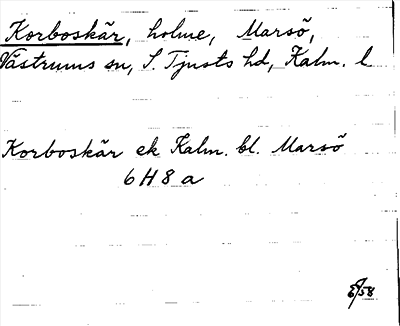 Korboskär, holme, Marsö,
Västrums sn, S. Tjusts hd, Kalm. l
Korboskär ek Kalm. bl. Marsö
6 H 8 a